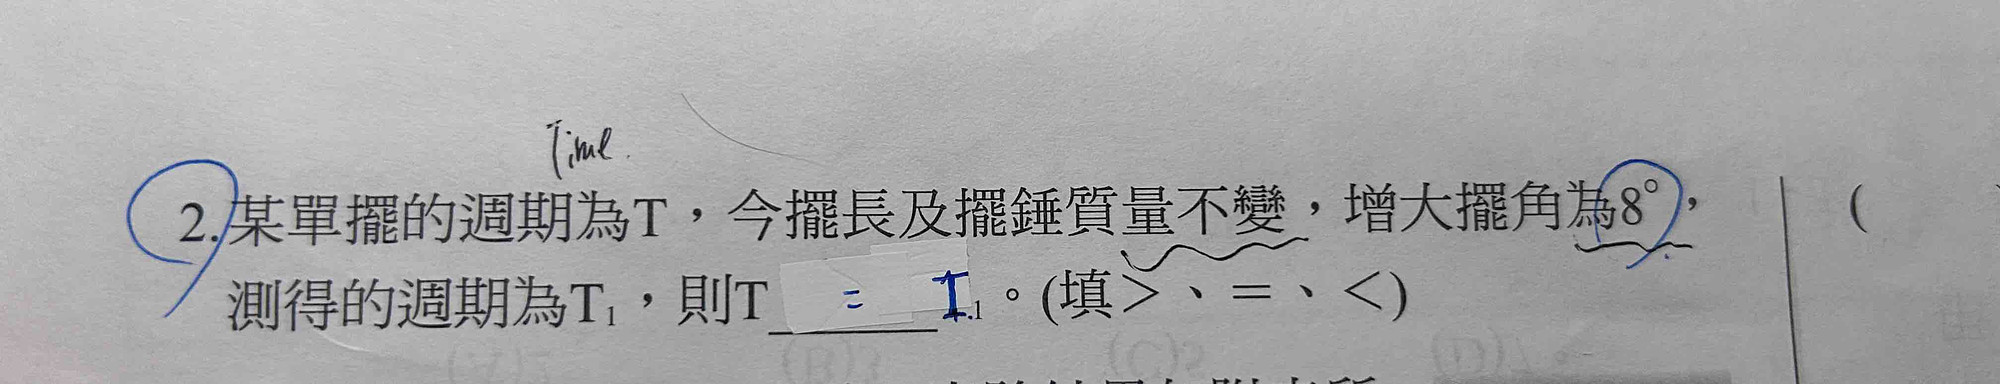 Time.
2.某單擺的週期為T，今擺長及擺錘質量不變，增大擺角為8°， (
測得的週期為T₁，則T = T₁。(填＞、＝、＜)